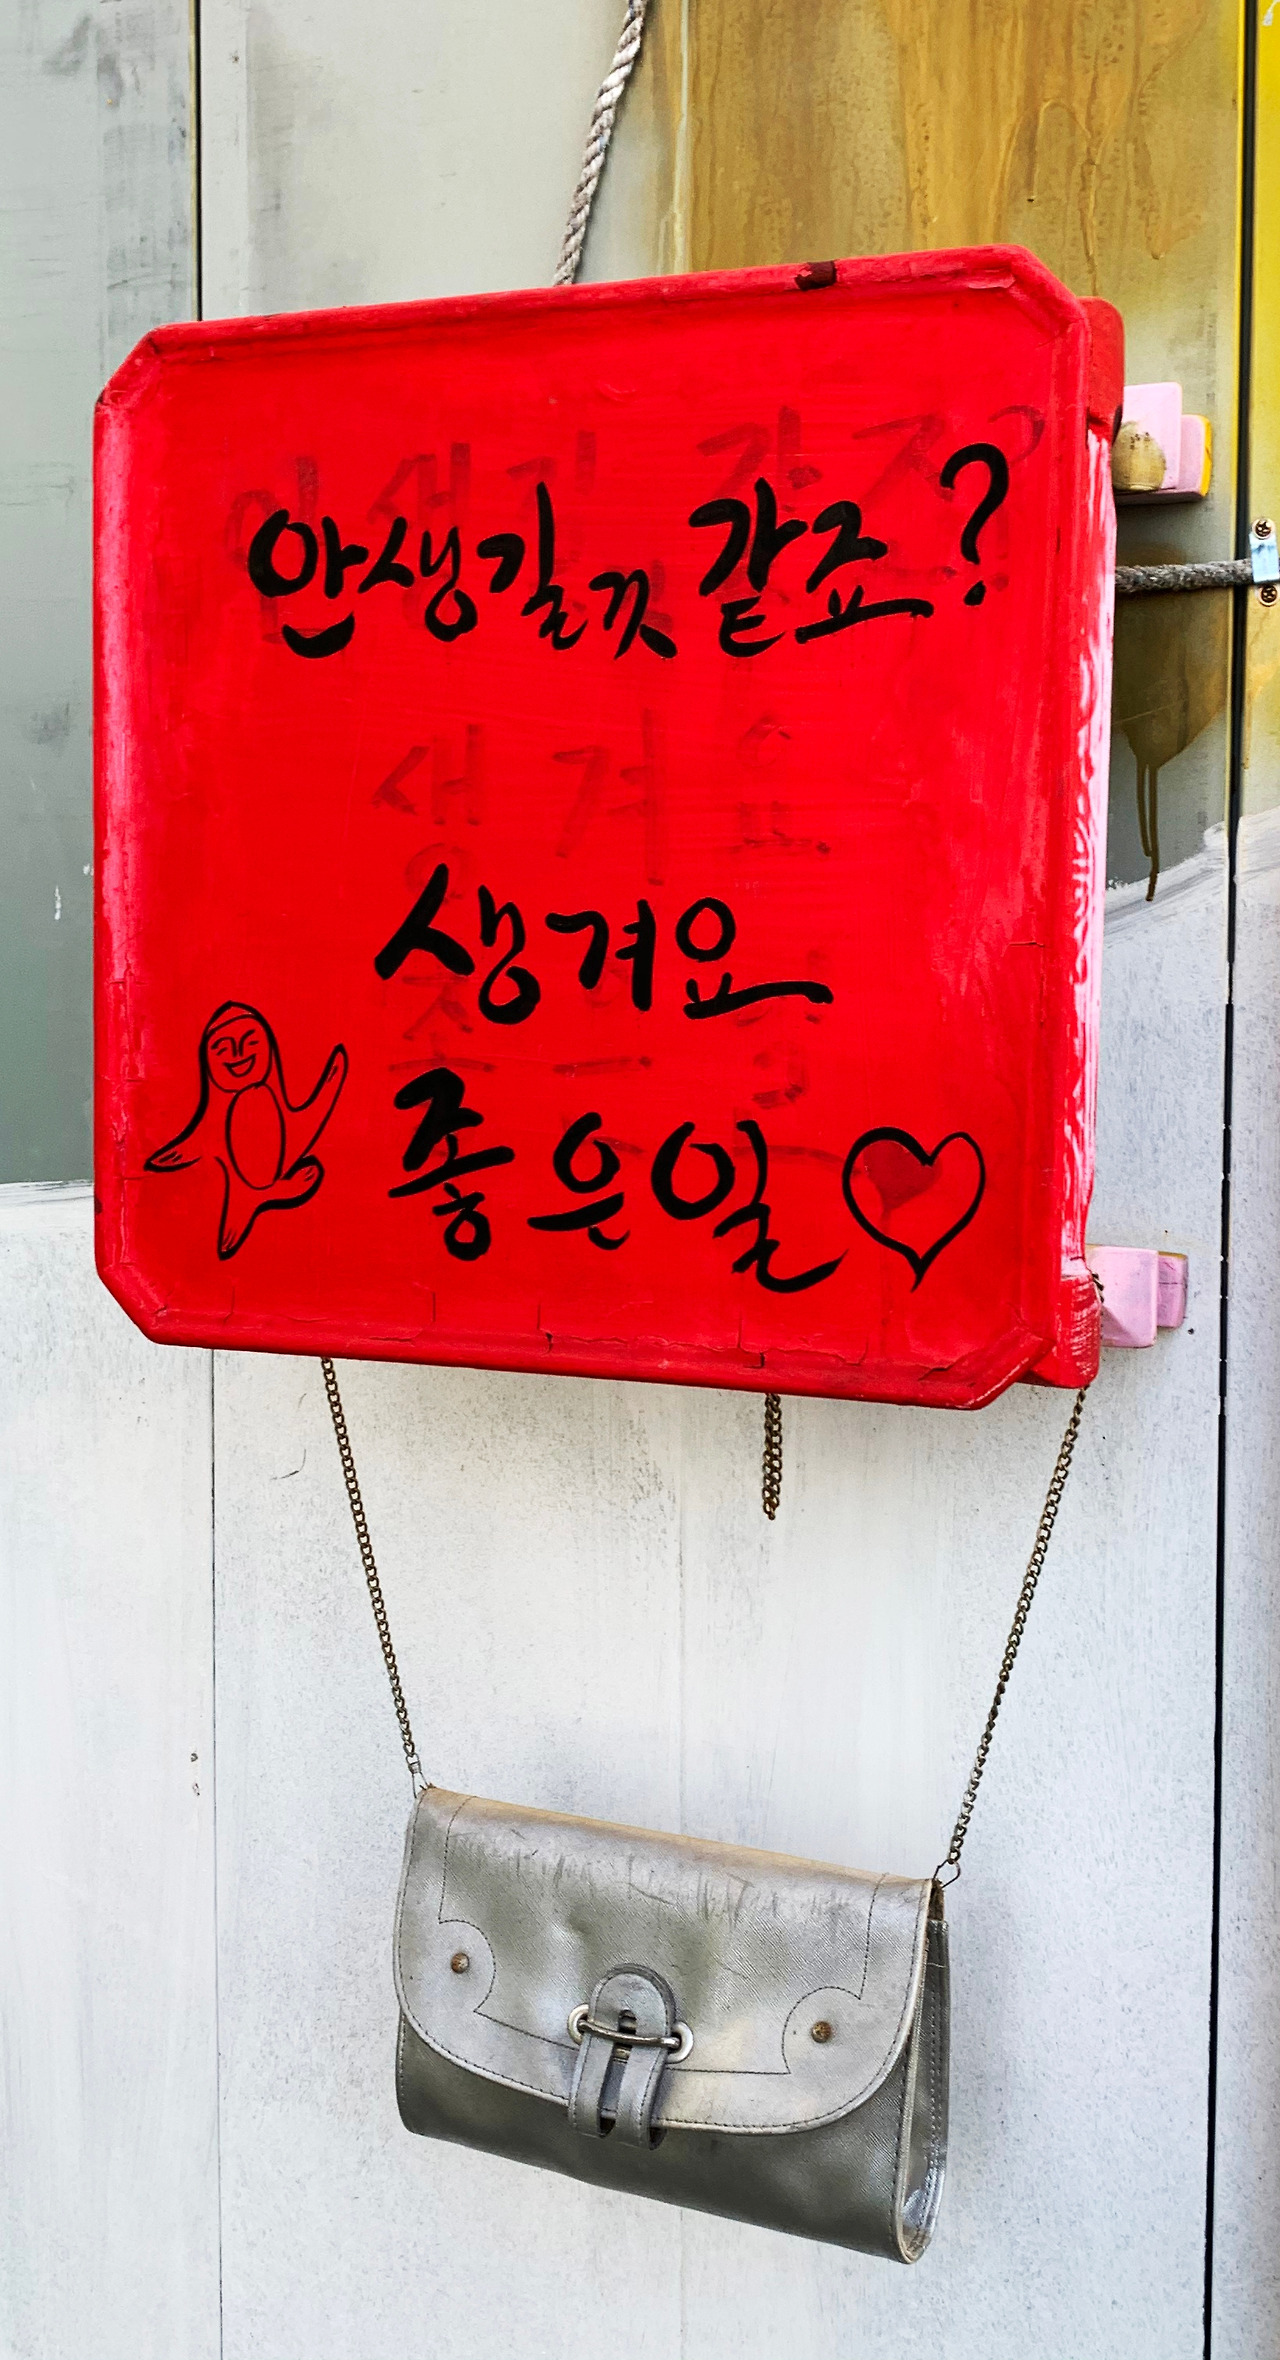 안생길껏 같죠?
생겨요
좋은일